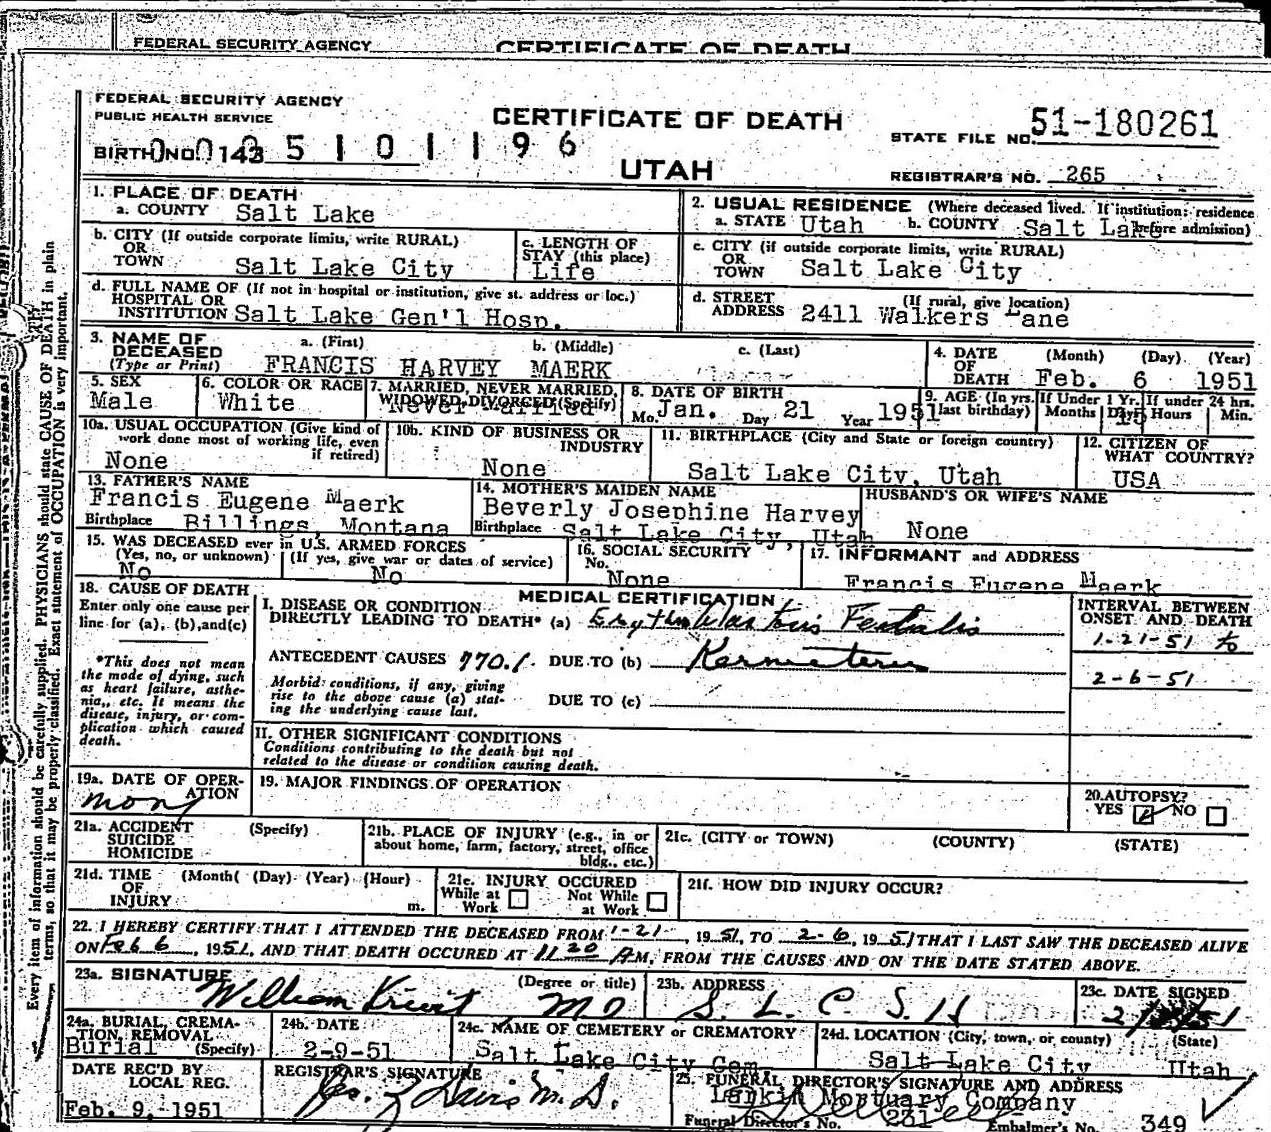 FEDERAL SECURITY AGENCY CERTIFICATE OF DEATH
FEDERAL SECURITY AGENCY
PUBLIC HEALTH SERVICE
CERTIFICATE OF DEATH
STATE FILE NO. 51-180261
BIRTH NO. 143 5 1 0 1 1 9 6
UTAH
REGISTRAR'S NO. 265
1. PLACE OF DEATH
a. COUNTY Salt Lake
2. USUAL RESIDENCE (Where deceased lived. If institution: residence before admission)
a. STATE Utah b. COUNTY Salt Lake
b. CITY (If outside corporate limits, write RURAL)
OR
TOWN Salt Lake City
c. LENGTH OF
STAY (this place)
Life
c. CITY (if outside corporate limits, write RURAL)
OR
TOWN Salt Lake City
d. FULL NAME OF (If not in hospital or institution, give st. address or loc.)
HOSPITAL OR
INSTITUTION Salt Lake Gen'l Hosp.
d. STREET (If rural, give location)
ADDRESS 2411 Walkers Lane
3. NAME OF
DECEASED
(Type or Print)
a. (First) b. (Middle) c. (Last)
FRANCIS HARVEY MAERK
4. DATE
OF
DEATH
(Month) (Day) (Year)
Feb. 6 1951
5. SEX
Male
6. COLOR OR RACE
White
7. MARRIED, NEVER MARRIED,
WIDOWED, DIVORCED (Specify)
Never Married
8. DATE OF BIRTH
Mo. Jan. Day 21 Year 1951
9. AGE (In yrs.
last birthday)
If Under 1 Yr.
Months Days
15
If under 24 hrs.
Hours Min.
10a. USUAL OCCUPATION (Give kind of
work done most of working life, even
if retired)
None
10b. KIND OF BUSINESS OR
INDUSTRY
None
11. BIRTHPLACE (City and State or foreign country)
Salt Lake City, Utah
12. CITIZEN OF
WHAT COUNTRY?
USA
13. FATHER'S NAME
Francis Eugene Maerk
Birthplace Billings, Montana
14. MOTHER'S MAIDEN NAME
Beverly Josephine Harvey
Birthplace Salt Lake City, Utah
HUSBAND'S OR WIFE'S NAME
None
15. WAS DECEASED ever in U.S. ARMED FORCES
(Yes, no, or unknown) (If yes, give war or dates of service)
No No
16. SOCIAL SECURITY
No.
None
17. INFORMANT and ADDRESS
Francis Eugene Maerk
18. CAUSE OF DEATH
Enter only one cause per
line for (a), (b), and (c)
*This does not mean
the mode of dying, such
as heart failure, asthe-
nia, etc. It means the
disease, injury, or com-
plication which caused
death.
MEDICAL CERTIFICATION
I. DISEASE OR CONDITION
DIRECTLY LEADING TO DEATH* (a) Erythroblastosis Foetalis
ANTECEDENT CAUSES 770.1 DUE TO (b) Kernicterus
Morbid conditions, if any, giving
rise to the above cause (a) stat-
ing the underlying cause last.
DUE TO (c)
II. OTHER SIGNIFICANT CONDITIONS
Conditions contributing to the death but not
related to the disease or condition causing death.
INTERVAL BETWEEN
ONSET AND DEATH
1-21-51 to
2-6-51
19a. DATE OF OPER-
ATION
19. MAJOR FINDINGS OF OPERATION
20. AUTOPSY?
YES NO
21a. ACCIDENT (Specify)
SUICIDE
HOMICIDE
21b. PLACE OF INJURY (e.g., in or
about home, farm, factory, street, office
bldg., etc.)
21c. (CITY or TOWN) (COUNTY) (STATE)
21d. TIME (Month) (Day) (Year) (Hour)
OF
INJURY m.
21e. INJURY OCCURED
While at Not While
Work at Work
21f. HOW DID INJURY OCCUR?
22. I HEREBY CERTIFY THAT I ATTENDED THE DECEASED FROM 1-21-, 1951, TO 2-6, 1951 THAT I LAST SAW THE DECEASED ALIVE
ON Feb 6, 1951, AND THAT DEATH OCCURED AT 11 20 A M, FROM THE CAUSES AND ON THE DATE STATED ABOVE.
23a. SIGNATURE (Degree or title)
William Krivit M D
23b. ADDRESS
S. L. C. S. H
23c. DATE SIGNED
24a. BURIAL, CREMA-
TION, REMOVAL
(Specify)
Burial
24b. DATE
2-9-51
24c. NAME OF CEMETERY or CREMATORY
Salt Lake City Cem
24d. LOCATION (City, town, or county) (State)
Salt Lake City Utah
DATE REC'D BY
LOCAL REG.
Feb. 9, 1951
REGISTRAR'S SIGNATURE
Davis M. D.
25. FUNERAL DIRECTOR'S SIGNATURE AND ADDRESS
Larkin Mortuary Company
Funeral Director's No. 231 Embalmer's No. 349
Every item of information should be carefully supplied. PHYSICIANS should state CAUSE OF DEATH in plain
terms, so that it may be properly classified. Exact statement of OCCUPATION is very important.